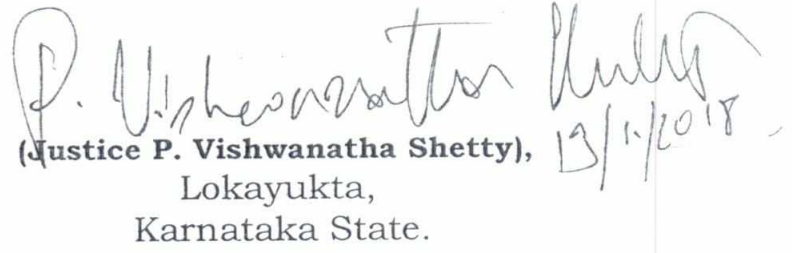 P. Vishwanatha Shetty
(Justice P. Vishwanatha Shetty),
19/1/2018
Lokayukta,
Karnataka State.